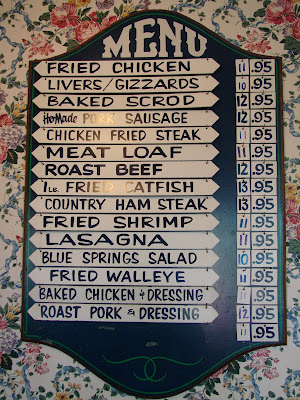 MENU
FRIED CHICKEN 11 .95
LIVERS/GIZZARDS 10 .95
BAKED SCROD 12 .95
HoMade PORK SAUSAGE 12 .95
CHICKEN FRIED STEAK 11 .95
MEAT LOAF 11 .95
ROAST BEEF 12 .95
1 LB. FRIED CATFISH 13 .95
COUNTRY HAM STEAK 13 .95
FRIED SHRIMP 11 .95
LASAGNA 11 .95
BLUE SPRINGS SALAD 10 .95
FRIED WALLEYE 11 .95
BAKED CHICKEN & DRESSING 11 .95
ROAST PORK & DRESSING 12 .95
11 .95